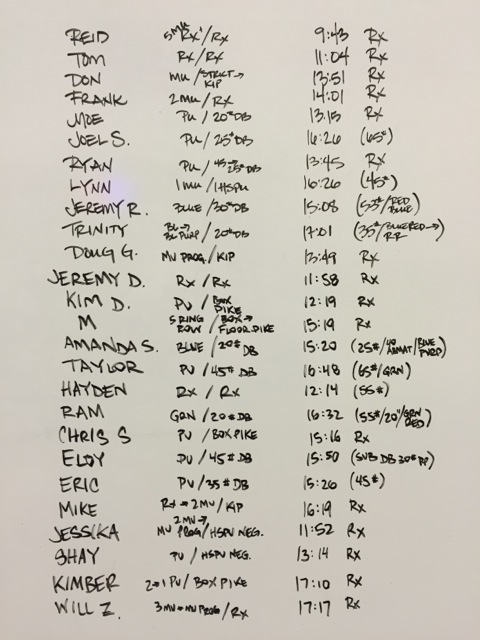 REID 5MU Rx'/Rx 9:43 Rx
TOM Rx/Rx 11:04 Rx
DON MU/STRICT→KIP 13:51 Rx
FRANK 2MU/Rx 14:01 Rx
MOE PU/20#DB 13:15 Rx
JOEL S. PU/25#DB 16:26 (65#)
RYAN PU/45→25#DB 13:45 Rx
LYNN 1MU/1HSPU 16:26 (45#)
JEREMY R. BLUE/30#DB 15:08 (53#/RED BLUE)
TRINITY BL→BL PURP/20#DB 17:01 (35#/BLUE RED→RR)
DOUG G. MU PROG./KIP 13:49 Rx
JEREMY D. Rx/Rx 11:58 Rx
KIM D. PU/BOX PIKE 12:19 Rx
M 5 RING ROW/BOX→FLOOR PIKE 15:19 Rx
AMANDA S. BLUE/20#DB 15:20 (25#/40 /BLUE PURP)
TAYLOR PU/45#DB 16:48 (65#/GRN)
HAYDEN Rx/Rx 12:14 (55#)
RAM GRN/20#DB 16:32 (55#/20"/GRN RED)
CHRIS S PU/BOX PIKE 15:16 Rx
ELOY PU/45#DB 15:50 (SUB DB 30# PP)
ERIC PU/35#DB 15:26 (45#)
MIKE Rx→2MU/KIP 16:19 Rx
JESSIKA 2MU→MU PROG/HSPU NEG. 11:52 Rx
SHAY PU/HSPU NEG. 13:14 Rx
KIMBER 2→1 PU/BOX PIKE 17:10 Rx
WILL Z. 3MU→MU PROG/Rx 17:17 Rx